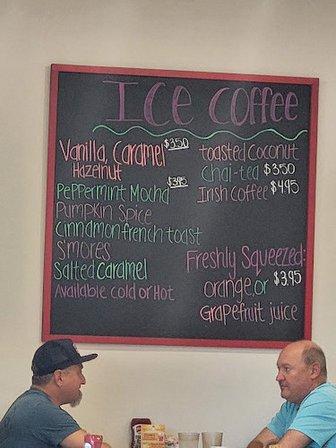 Ice Coffee
Vanilla, Caramel $3.50
Hazelnut
$3.95
Peppermint Mocha
Pumpkin Spice
Cinnamon french toast
S'mores
Salted Caramel
Available cold or Hot
toasted coconut
chai-tea $3.50
Irish coffee $4.95
Freshly Squeezed:
orange, or $3.95
Grapefruit juice